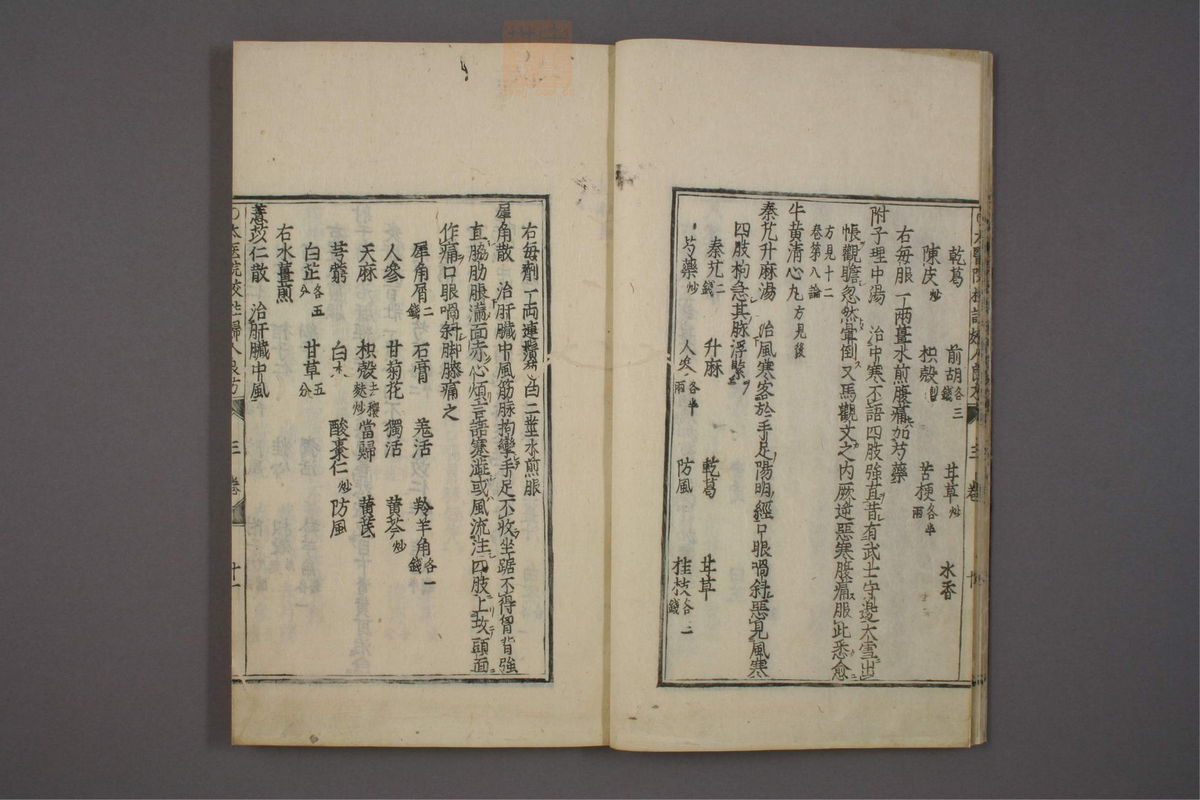 乾葛 前胡各三錢 甘草炒 木香
陳皮炒 枳殼製 苦梗各半兩
右每服一兩薑水煎腹痛加芍藥
附子理中湯 治中寒不語四肢強直昔有武士守邊大雪出
帳觀瞻忽然暈倒又馬觀文之内厥逆惡寒腹痛服此悉愈
方見十二卷第八論
牛黄清心丸方見後
秦艽升麻湯 治風寒客於手足陽明經口眼喎斜惡見風寒
四肢拘急其脉浮緊
秦艽二錢 升麻 乾葛 甘草
芍藥炒 人參各半兩 防風 桂枝各二錢
右每劑一兩連鬚葱白二莖水煎服
犀角散 治肝臓中風筋脉拘攣手足不收坐踞不得胷背強
直脇肋脹滿面赤心煩言語蹇澁或風流注四肢上攻頭面
作痛口眼喎斜脚膝痛乏
犀角屑二錢 石膏 羌活 羚羊角各一錢
人參 甘菊花 獨活 黄芩炒
天麻 枳殼去穰麩炒 當歸 黄芪
芎藭 白朮 酸棗仁炒 防風
白芷各五分 甘草五分
右水薑煎
薏苡仁散 治肝臓中風
太医院校註婦人良方 三卷 十一